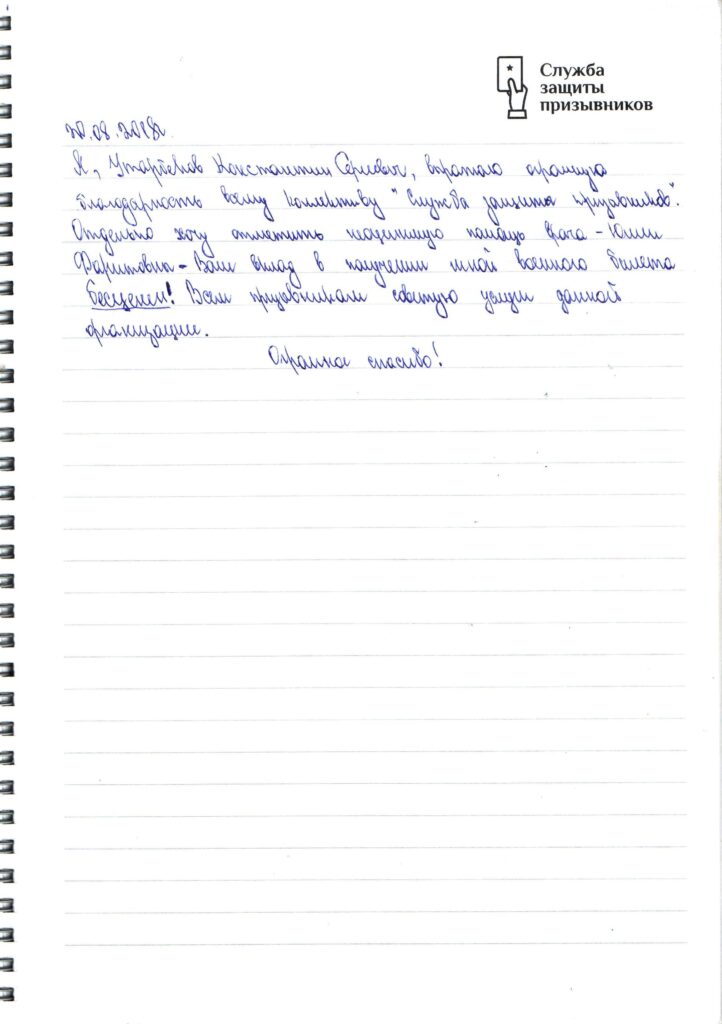 Служба
защиты
призывников
20.08.2018г.
Я, Константин Сергеевич, выражаю огромную
благодарность всему коллективу "Служба защиты призывников".
Отдельно хочу отметить неоценимую помощь врача - Юлии
Фаритовны - Ваш вклад в получении мной военного билета
бесценен! Всем призывникам советую услуги данной
организации.
Огромное спасибо!